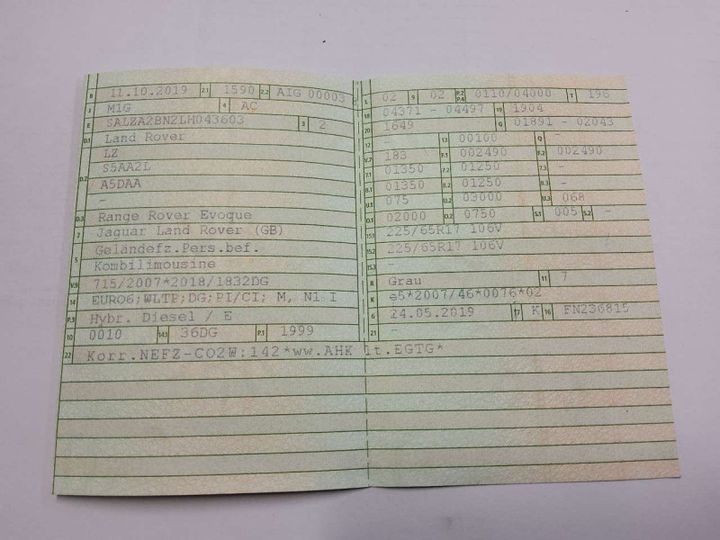 B 11.10.2019 2.1 1590 2.2 AIG 00003
J M1G 4 AC
E SALZA2BN2LH043603 3 2
D.1 Land Rover
LZ
D.2 S5AA2L
A5DAA
-
D.3 Range Rover Evoque
2 Jaguar Land Rover (GB)
Geländefz.Pers.bef.
5 Kombilimousine
V.9 715/2007*2018/1832DG
14 EURO6;WLTP;DG;PI/CI; M, N1 I
P.3 Hybr. Diesel / E
10 0010 14.1 36DG P.1 1999
22 Korr.NEFZ-CO2W:142*ww.AHK lt.EGTG*
L 02 9 02 P.2 P.4 0110/04000 T 196
18 04371 - 04497 19 1904
20 1649 G 01891 - 02043
12 - 13 00100 Q -
V.7 183 F.1 002490 F.2 002490
7.1 01350 7.2 01250 7.3 -
8.1 01350 8.2 01250 8.3 -
U.1 075 U.2 03000 U.3 068
O.1 02000 O.2 0750 S.1 005 S.2 -
15.1 225/65R17 106V
15.2 225/65R17 106V
15.3 -
R Grau 11 7
K e5*2007/46*0076*02
6 24.05.2019 17 K 16 FN236815
21 -